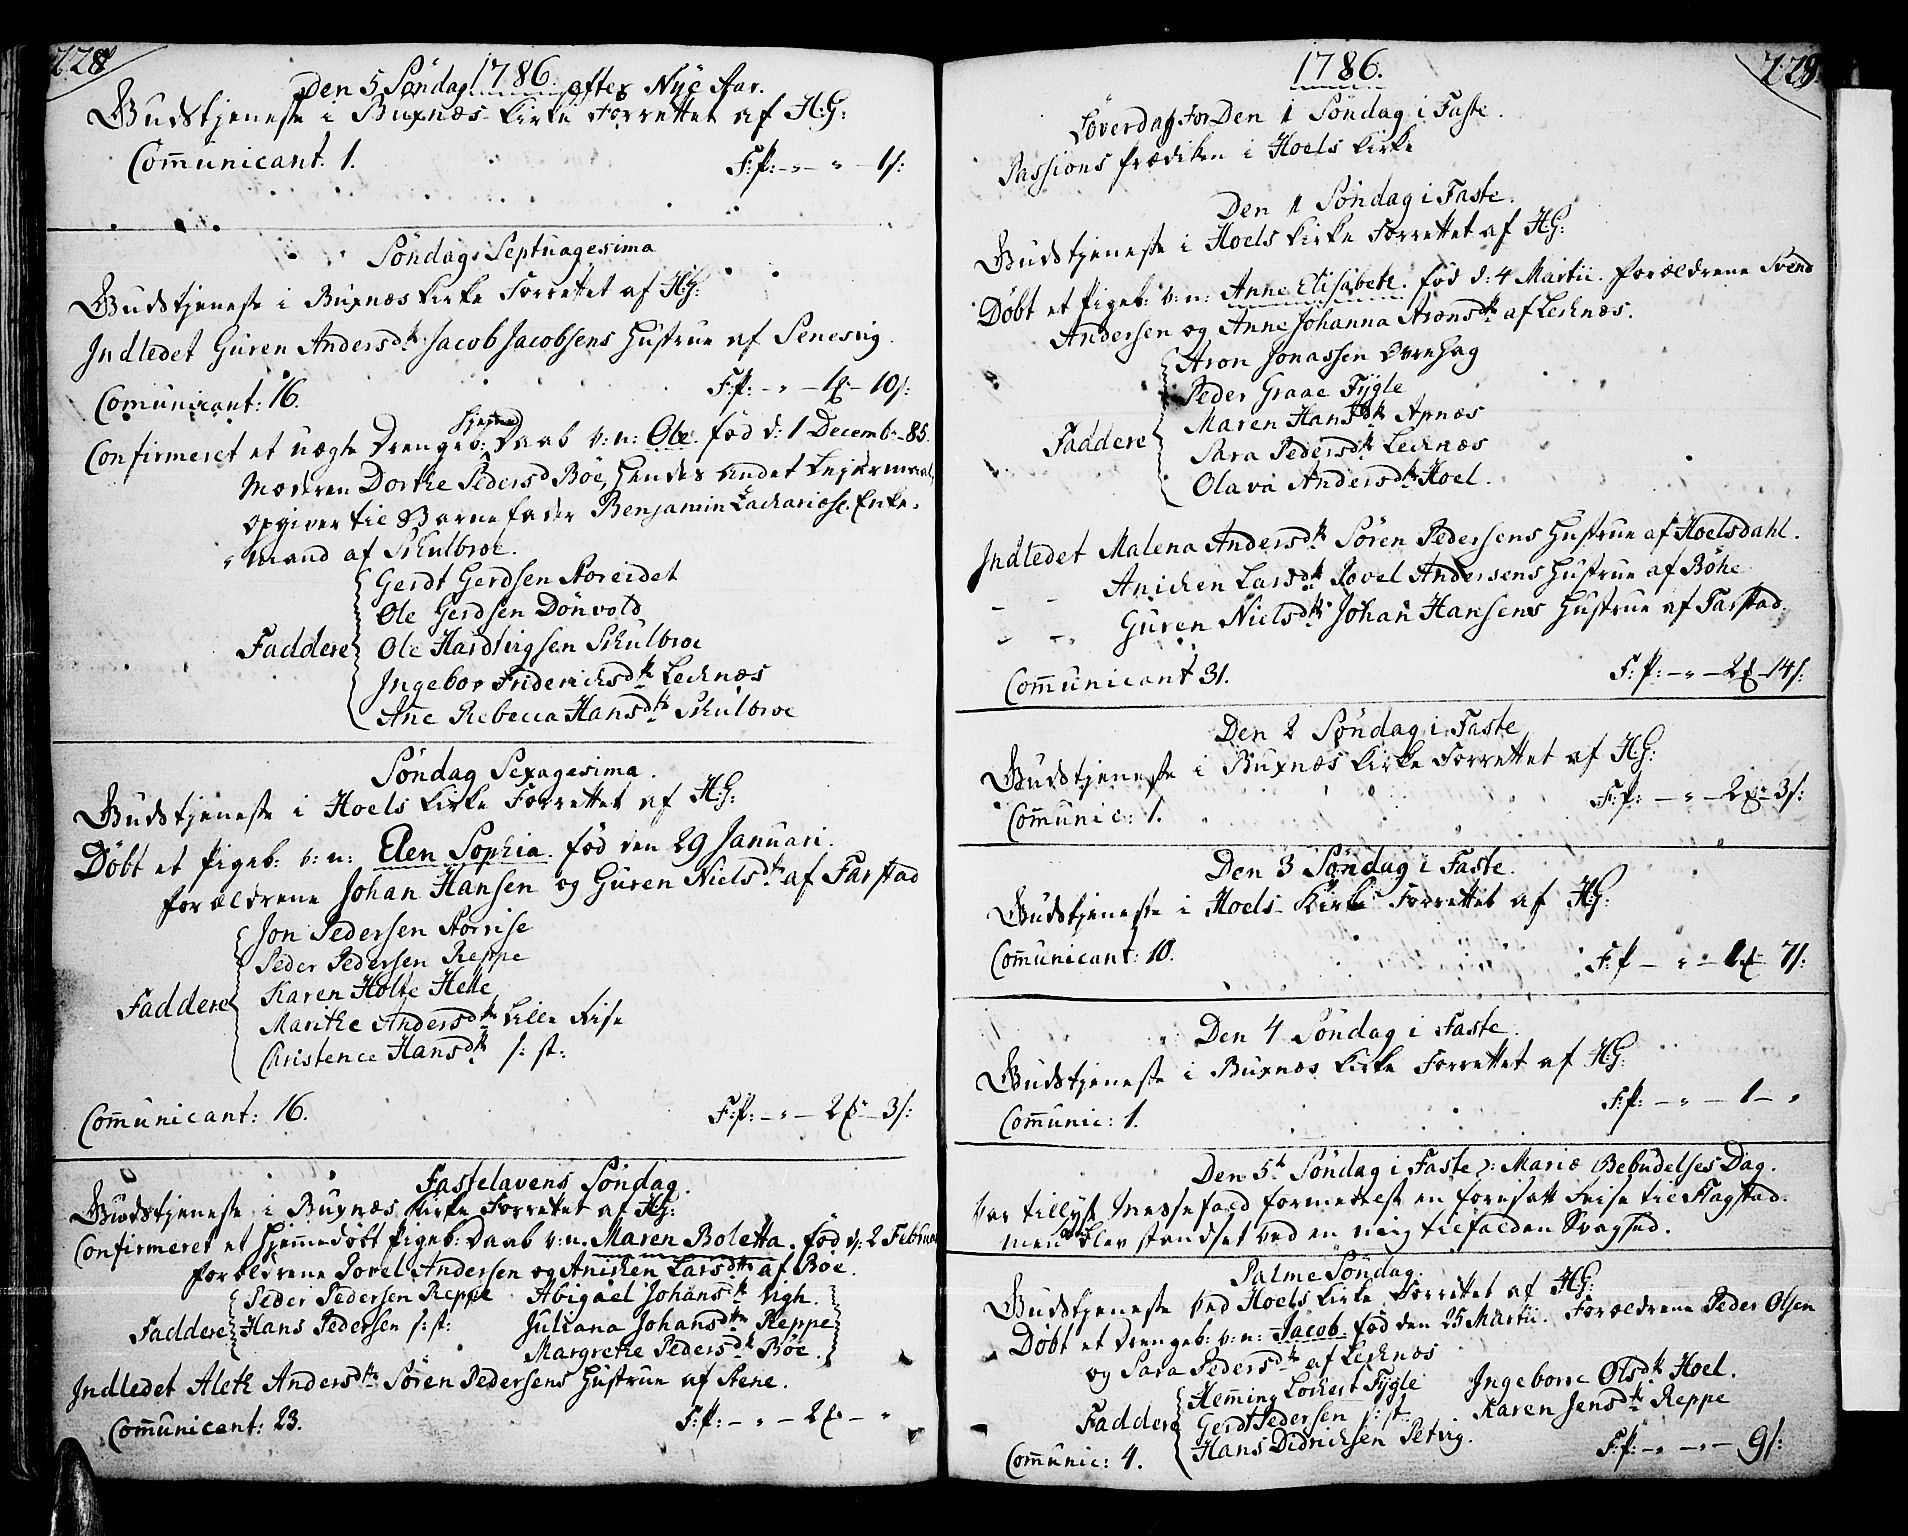 228
1786.
Den 5 Søndag efter Nye Aar.
Gudstjeneste i Buxnæs Kirke Forrettet af H:G:
Com̄unicant. 1.
F:P: – „ – „ – 1 s:
Søndag Septuagesima
Gudstjeneste i Buxnæs Kirke Forrettet af H:G:
Indledet Guren Andersdtr Jacob Jacobsens Hustrue af Senesvig.
Comunicant: 16.
F:P: – „ – 1 – 10 s:
Confirmeret et uægte Drengeb: hjem̄e Daab v: n: Ole. fød d: 1 Decemb: 85.
Moderen Dorthe Pedersd Böe, hendes andet Lejermaal,
opgiver til Barnefader Benjamin Zachariæs. Enke-
mand af Skulbroe.
Gerdt Gerdsen Storeidet
Ole Gerdsen Dönvold
Faddere Ole Hardvigsen Skulbroe
Ingebor Friderichsdtr Lecknæs
Ane Rebecca Hansdtr Skulbroe
Søndag Sexagesima.
Gudstjeneste i Hoels Kirke Forrettet af H:G:
Döbt et Pigeb: v: n: Elen Sophia. fød den 29 Januari.
forældrene Johan Hansen og Guren Nielsdtr af Farstad
Jon Pedersen Storrise
Peder Pedersen Reppe
Faddere Karen Holte Helle
Marithe Andersdtr Lille Rise
Christence Hansdtr s: st:
Com̄unicant: 16.
F:P: – „ – 2 – 3 s:
Fastelavens Søndag.
Gudstjeneste i Buxnæs Kirke Forrettet af H:G:
Confirmeret et hjem̄edöbt Pigeb: Daab v: n. Maren Boletta. fød d: 2 Februar
forældrene Povel Andersen og Anichen Larsdtr af Böe.
Peder Pedersen Reppe Abigael Johansdtr Vigh.
Faddere Hans Pedersen s: st: Juliana Johansdtr Reppe
Margrethe Pedersdtr Böe.
Indledet Aleth Andersdtr Sören Pedersens Hustrue af Stene.
Com̄unicant: 23.
F:P: – „ – 2 – „
229.
1786.
Löverdag for Den 1 Søndag i Faste.
Passions Prædiken i Hoels Kirke
Den 1 Søndag i Faste.
Gudstjeneste i Hoels Kirke Forrettet af H:G:
Döbt et Pigeb: v: n: Anne Elisabeth. fød d: 4 Martii. forældrene Svend
Andersen og Anne Johanna Aronsdtr af Lecknæs.
Aron Jonassen Ovrehag
Peder Graae Fygle
Faddere Maren Hansdtr Apnæs
Sara Pedersdtr Lecknæs
Olava Andersdtr Hoel.
Indledet Malena Andersdtr Sören Pedersens Hustrue af Hoelsdahl.
– – Anichen Larsdtr Povel Andersens Hustrue af Böhe
– – Guren Nielsdtr Johan Hansens Hustrue af Farstad.
Com̄unicant 31.
F:P: – „ – 2 – 14 s:
Den 2 Søndag i Faste
Gudstjeneste i Buxnæs Kirke Forrettet af H:G:
Com̄unic: 1.
F:P: – „ – 2 – 3 s:
Den 3 Søndag i Faste.
Gudstjeneste i Hoels Kirke Forrettet af H:G:
Com̄unicant: 10.
F:P – „ – 1 – 7 s:
Den 4 Søndag i Faste.
Gudstjeneste i Buxnæs Kirke Forrettet af H:G:
Com̄unic: 1.
F:P: – „ – 1 – „
Den 5te Søndag i Faste ɔ: Mariæ Bebudelses Dag.
var tillyst Messefald formedelst en foresatt Reise til Flagstad.
men blev standset ved en mig tilfalden Svaghed.
Palme Søndag.
Gudstjeneste ved Hoels Kirke Forrettet af H:G:
Döbt et Drengeb: v: n: Jacob. fød den 25 Martii. Forældrene Peder Olsen
og Sara Pedersdtr af Lecknæs
Hem̄ing Lockert Fygle Ingeborre Olsdtr Hoel.
Faddere Gerdt Pedersen s: st: Karen Jensdtr Reppe
Hans Didrichsen Petvig.
Com̄unic: 4.
F:P: – „ – „ – 9 s: